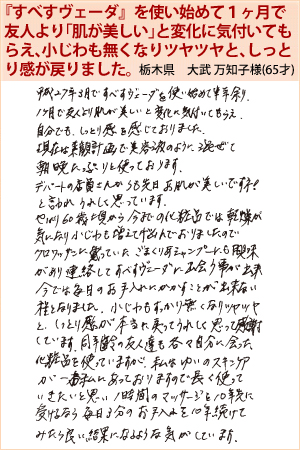 『すべすヴェーダ』を使い始めて１ヶ月で
友人より「肌が美しい」と変化に気付いても
らえ、小じわも無くなりツヤツヤと、しっと
り感が戻りました。栃木県　大武 万知子様(65才)
平成27年3月ですべすヴェーダを使い始めて半年余り、
1ヶ月で友人より肌が美しいと変化に気付いてもらえ、
自分でも、しっとり感を感じておりました。
現在は素顔計画で美容液のように混ぜて
朝晩たっぷりと使っております。
デパートの店員さんからも先日お肌が美しいですネ!
と言われうれしく思っています。
やはり60歳頃から今までの化粧品では乾燥が
気になり小じわも増えて悩んでおりましたので
クロワッサンに載っていたごまくりあシャンプーにも興味
があり連絡してすべすヴェーダに出会う事が出来
今では毎日のお手入れにかかすことが出来ない
程となりました。小じわもすっかり無くなりツヤツヤ
と、しっとり感が本当に戻ってうれしく思って感謝
しています。同年齢の友人達も各々自分に合った
化粧品を使っていますが、私はゆいのスキンケア
が一番私に合っておりますので長く使って
いきたいと思い1時間のマッサージを10年先に
受けるなら毎日3分のお手入れを10年続けて
みたら良い結果になるような気がしています。